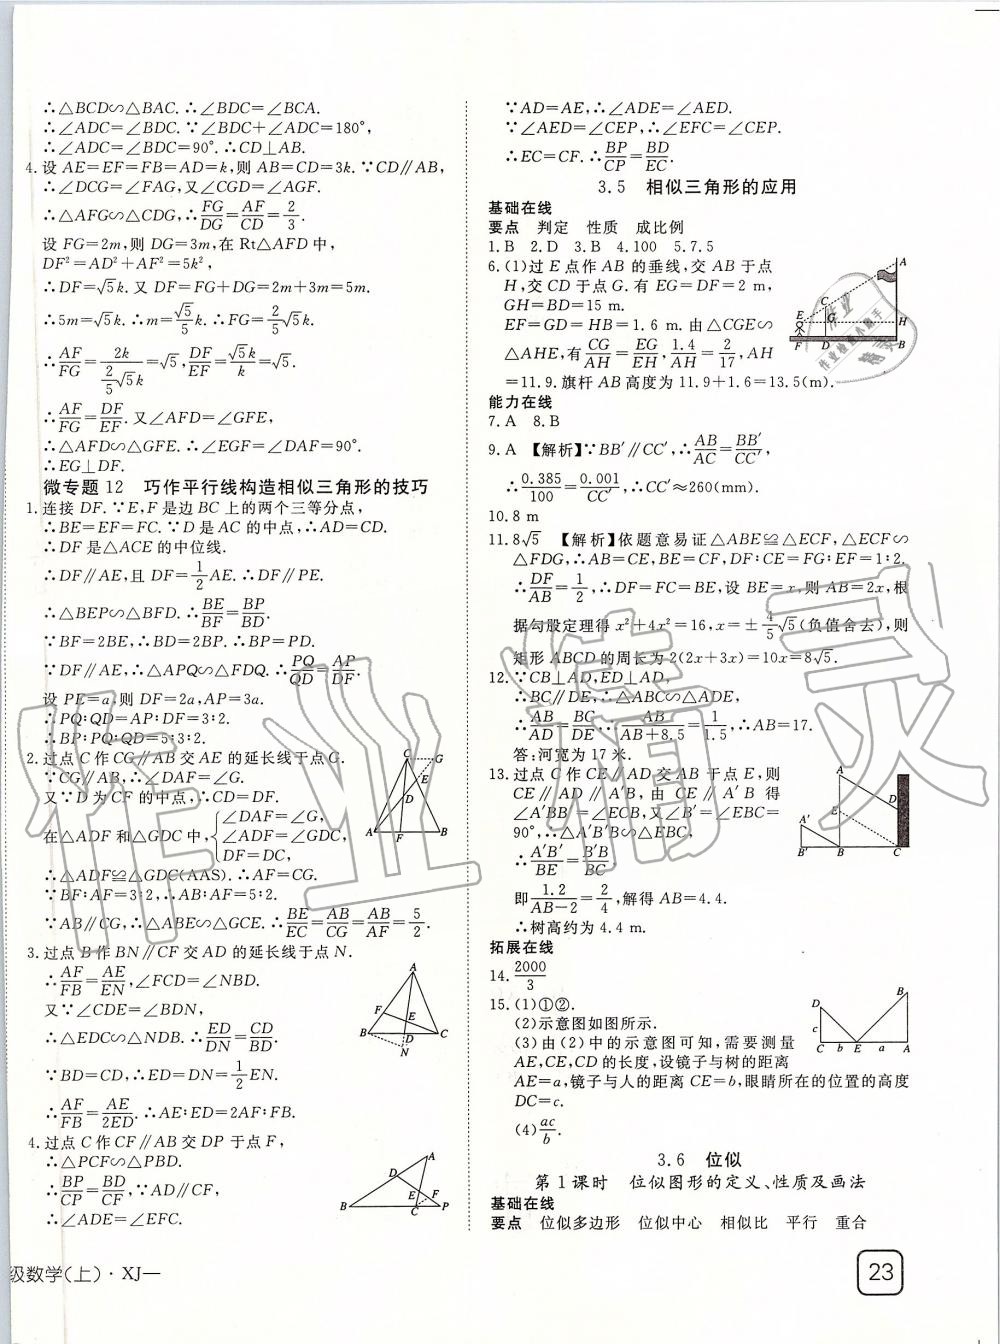 ∴△BCD∽△BAC. ∴∠BDC=∠BCA.
∴∠ADC=∠BDC. ∵∠BDC+∠ADC=180°,
∴∠ADC=∠BDC=90°. ∴CD⊥AB.
4. 设 AE=EF=FB=AD=k,则 AB=CD=3k. ∵CD∥AB,
∴∠DCG=∠FAG,又∠CGD=∠AGF.
∴△AFG∽△CDG,∴FG/DG=AF/CD=2/3.
设 FG=2m,则 DG=3m,在 Rt△AFD 中,
DF²=AD²+AF²=5k²,
∴DF=√5k. 又 DF=FG+DG=2m+3m=5m.
∴5m=√5k. ∴m=√5/5k. ∴FG=2/5√5k.
∴AF/FG=2k/(2/5√5k)=√5,DF/EF=√5k/k=√5.
∴AF/FG=DF/EF. 又∠AFD=∠GFE,
∴△AFD∽△GFE. ∴∠EGF=∠DAF=90°.
∴EG⊥DF.
微专题 12 巧作平行线构造相似三角形的技巧
1. 连接 DF. ∵E,F 是边 BC 上的两个三等分点,
∴BE=EF=FC. ∵D 是 AC 的中点,∴AD=CD.
∴DF 是△ACE 的中位线.
∴DF∥AE,且 DF=1/2AE. ∴DF∥PE.
∴△BEP∽△BFD. ∴BE/BF=BP/BD.
∵BF=2BE,∴BD=2BP. ∴BP=PD.
∵DF∥AE,∴△APQ∽△FDQ. ∴PQ/QD=AP/DF.
设 PE=a,则 DF=2a,AP=3a.
∴PQ∶QD=AP∶DF=3∶2.
∴BP∶PQ∶QD=5∶3∶2.
2. 过点 C 作 CG∥AB 交 AE 的延长线于点 G.
∵CG∥AB,∴∠DAF=∠G.
又∵D 为 CF 的中点,∴CD=DF.
在△ADF 和△GDC 中,{∠DAF=∠G,
∠ADF=∠GDC,
DF=DC,
∴△ADF≌△GDC(AAS). ∴AF=CG.
∵BF∶AF=3∶2,∴AB∶AF=5∶2.
∵AB∥CG,∴△ABE∽△GCE. ∴BE/EC=AB/CG=AB/AF=5/2.
C G E D A F B
3. 过点 B 作 BN∥CF 交 AD 的延长线于点 N.
∴AF/FB=AE/EN,∠FCD=∠NBD.
又∵∠CDE=∠BDN,
∴△EDC∽△NDB. ∴ED/DN=CD/BD.
∵BD=CD,∴ED=DN=1/2EN.
∴AF/FB=AE/2ED. ∴AE∶ED=2AF∶FB.
A F E B D C N
4. 过点 C 作 CF∥AB 交 DP 于点 F,
∴△PCF∽△PBD.
∴BP/CP=BD/CF,∵AD∥CF,
∴∠ADE=∠EFC.
A D E F B C P
∵AD=AE,∴∠ADE=∠AED.
∵∠AED=∠CEP,∴∠EFC=∠CEP.
∴EC=CF. ∴BP/CP=BD/EC.
3.5 相似三角形的应用
基础在线
要点 判定 性质 成比例
1. B 2. D 3. B 4. 100 5. 7.5
6. (1)过 E 点作 AB 的垂线,交 AB 于点
H,交 CD 于点 G. 有 EG=DF=2 m,
GH=BD=15 m.
EF=GD=HB=1.6 m. 由△CGE∽
△AHE,有CG/AH=EG/EH,1.4/AH=2/17,AH
=11.9. 旗杆 AB 高度为 11.9+1.6=13.5(m).
A C E G H F D B
能力在线
7. A 8. B
9. A 【解析】∵BB′∥CC′,∴AB/AC=BB′/CC′,
∴0.385/100=0.001/CC′,∴CC′≈260(mm).
10. 8 m
11. 8√5 【解析】依题意易证△ABE≌△ECF,△ECF∽
△FDG,∴AB=CE,BE=CF,DF∶CE=FG∶EF=1∶2.
∴DF/AB=1/2,∴DF=FC=BE,设 BE=x,则 AB=2x,根
据勾股定理得 x²+4x²=16,x=±4/5√5(负值舍去),则
矩形 ABCD 的周长为 2(2x+3x)=10x=8√5.
12. ∵CB⊥AD,ED⊥AD,
∴BC∥DE,∴△ABC∽△ADE,
∴AB/AD=BC/DE ∴AB/AB+8.5=1/1.5,∴AB=17.
答:河宽为 17 米.
13. 过点 C 作 CE∥AD 交 AB 于点 E,则
CE∥AD∥A′B,由 CE∥A′B 得
∠A′BB′=∠ECB,又∠B′=∠EBC=
90°,∴△A′B′B∽△EBC,
∴A′B′/BE=B′B/BC,
即1.2/AB−2=2/4,解得 AB=4.4.
∴树高约为 4.4 m.
A D E A′ B′ B C
拓展在线
14. 2000/3
15. (1)①②.
(2)示意图如图所示.
(3)由(2)中的示意图可知,需要测量
AE,CE,CD 的长度,设镜子与树的距离
AE=a,镜子与人的距离 CE=b,眼睛所在的位置的高度
DC=c.
(4)ac/b.
B D c C b E a A
3.6 位似
第 1 课时 位似图形的定义、性质及画法
基础在线
要点 位似多边形 位似中心 相似比 平行 重合
级数学(上)·XJ—
23
作业精灵
作业检查小助手